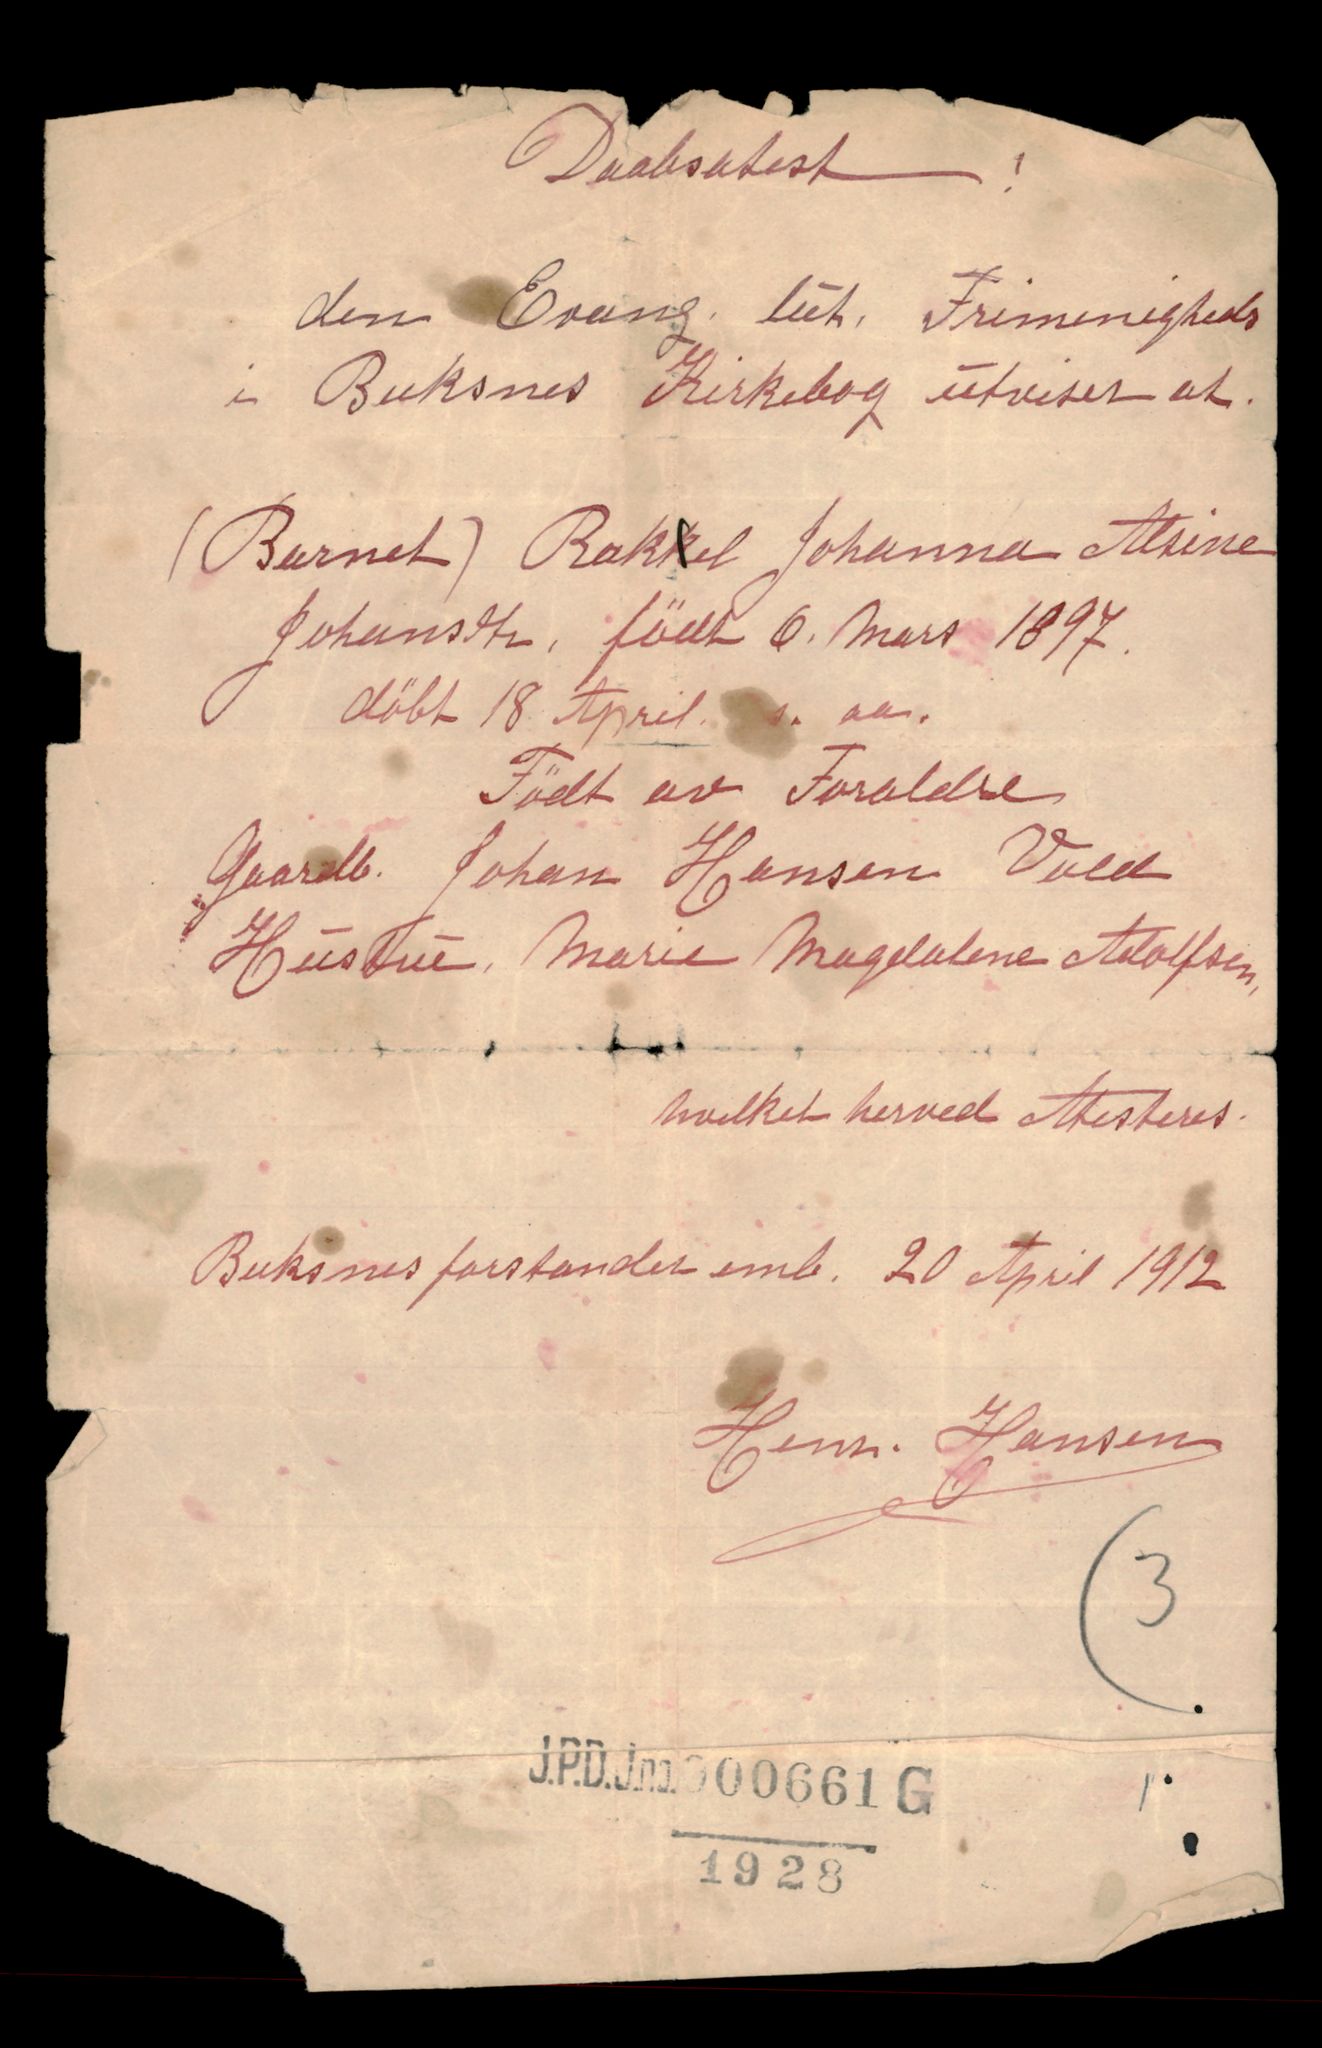 Daabsatest !
den Evang. lut. Frimenigheds
i Buksnes Kirkebog utviser at.
(Barnet) Rakkel Johanna Alsine
Johansdtr, födt 6. Mars 1897.
döbt 18 April. s. aa.
Födt av Foraldre
Gaardb. Johan Hansen Vold
Hustrue, Marie Magdalene Adolfsen,
hvilket herved Atesteres.
Buksnes forstander emb. 20 April 1912
Henr. Hansen
(3
J.P.D.J.no.000661 G
1928